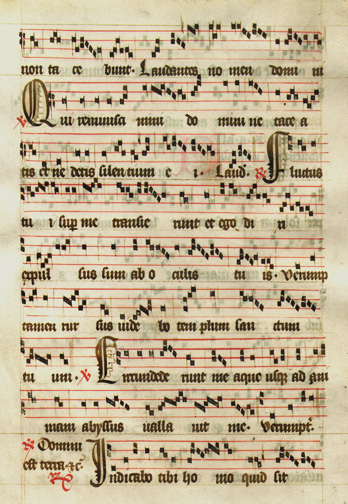 non ta ce bunt. Laudantes no men domi ni
℣ Qui reminisci mini do mini ne tace a
tis et ne detis silentium i. Laud. ℟ Fluctus
tu i sup me transie runt et ego di xi
expul sus sum ab o culis tu is. Verump
tamen rur sus vide bo tem plum san ctum
tu um. ℣ Circundede runt me aque usq ad ani
mam abyssus valla vit me. Verumpt.
℣ Domini
est terra ⁊c. Indicabo tibi ho mo quid sit
℟